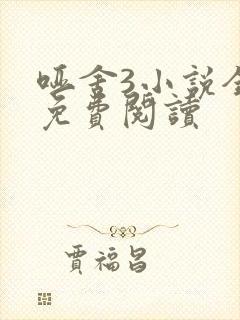 哑舍3小說全
免費閱讀
賈福昌